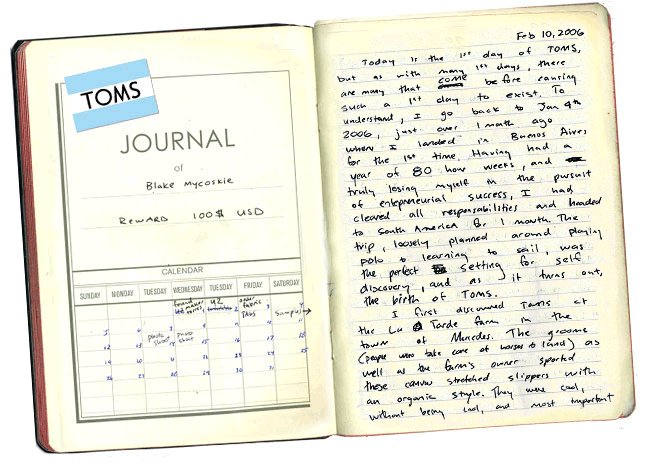 TOMS
JOURNAL
of
Blake Mycoskie
REWARD 100$ USD
CALENDAR
SUNDAY MONDAY TUESDAY WEDNESDAY THURSDAY FRIDAY SATURDAY
order fabric
TAGS
Samples
photo shoot
photo shoot
Feb 10, 2006
Today is the 1st day of TOMS,
but as with many 1st days, there
are many that come before causing
such a 1st day to exist. To
understand, I go back to Jan 4th
2006, just over 1 month ago
when I landed in Buenos Aires
for the 1st time. Having had a
year of 80 hour weeks, and
truly losing myself in the pursuit
of entepreneurial success, I had
cleared all responsabilities and headed
to South America for 1 month. The
trip, loosely planned around playing
polo & learning to sail, was
the perfect setting for self
discovery, and as it turns out,
the birth of Toms.
I first discovered Toms at
the La Tarde farm in the
town of Mercedes. The grooms
(people who take care of horses & land) as
well as the farm's owner sported
these canvas stretched slippers with
an organic style. They were cool,
without being cool, and most important